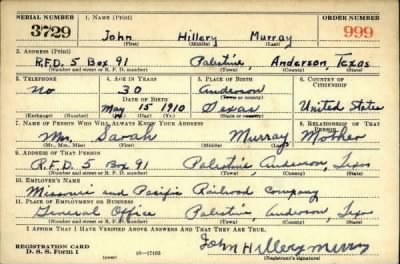 SERIAL NUMBER 1. NAME (Print) ORDER NUMBER
3729 John Hillery Murray 999
(First) (Middle) (Last)
2. ADDRESS (Print)
R.F.D. 5 Box 91 Palestine, Anderson, Texas
(Number and street or R. F. D. number) (Town) (County) (State)
3. TELEPHONE 4. AGE IN YEARS 5. PLACE OF BIRTH 6. COUNTRY OF CITIZENSHIP
no 30 Anderson
DATE OF BIRTH (Town or county)
May 15 1910 Texas United States
(Exchange) (Number) (Mo.) (Day) (Yr.) (State or country)
7. NAME OF PERSON WHO WILL ALWAYS KNOW YOUR ADDRESS 8. RELATIONSHIP OF THAT PERSON
Mrs. Sarah Murray Mother
(Mr., Mrs., Miss) (First) (Middle) (Last)
9. ADDRESS OF THAT PERSON
R.F.D. 5 Box 91 Palestine, Anderson, Texas
(Number and street or R. F. D. number) (Town) (County) (State)
10. EMPLOYER'S NAME
Missouri and Pacific Railroad Company
11. PLACE OF EMPLOYMENT OR BUSINESS
General Office Palestine, Anderson, Texas
(Number and street or R. F. D. number) (Town) (County) (State)
I AFFIRM THAT I HAVE VERIFIED ABOVE ANSWERS AND THAT THEY ARE TRUE.
REGISTRATION CARD John Hillery Murray
D. S. S. Form 1 16—17105 (Registrant's signature)